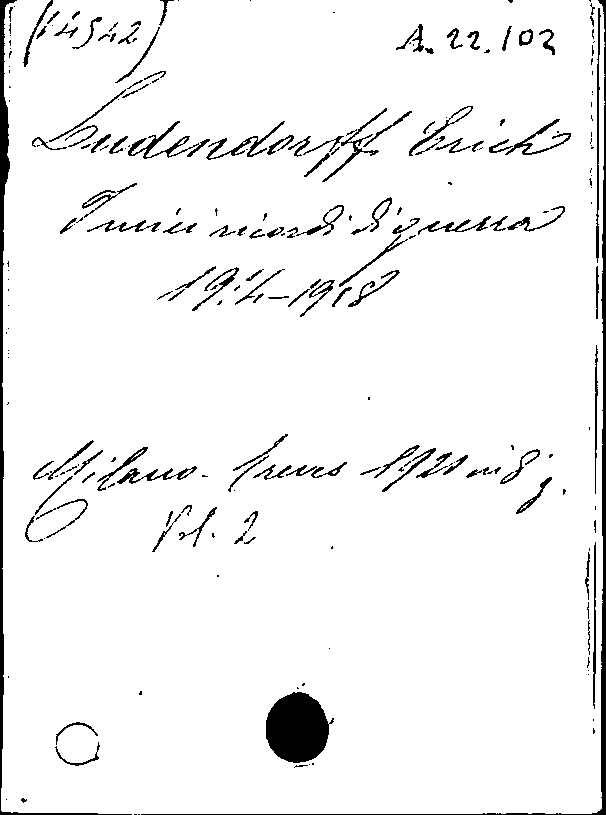 (14542) A. 22.102
Ludendorff Erich
I miei ricordi di guerra
1914-1918
Milano - Treves 1920 in 8 g.
Vol. 2